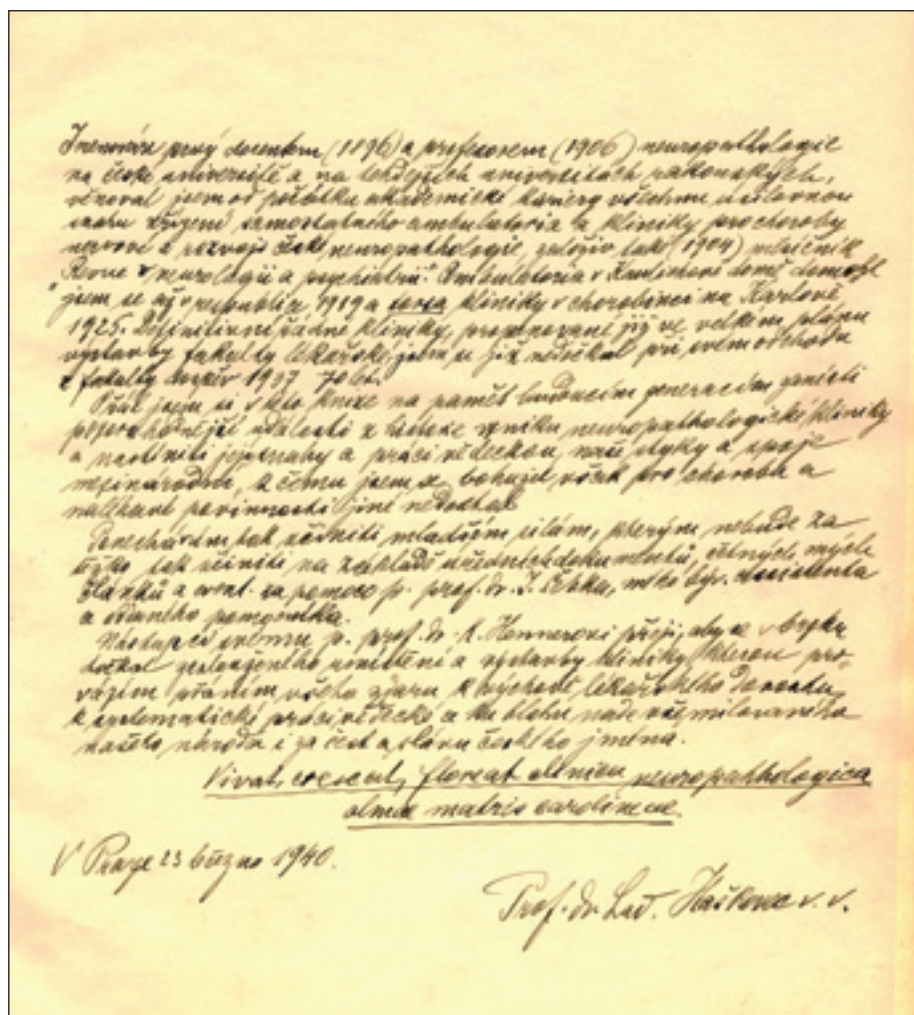 Jmenován prvý docentem (1896) a profesorem (1906) neuropathologie
na české universitě a na tehdejších universitách rakouských,
věnoval jsem od počátku akademické kariery všechnu úsilovnou
snahu zřízení samostatného ambulatoria a kliniky pro choroby
nervové a rozvoji české neuropathologie, založiv také (1904) měsíčník
„Revue v neurologii a psychiatrii“. Ambulatoria v Kaulichově domě domohl
jsem se až v republice 1919 a torsa kliniky v chorobinci na Karlově
1925. Definitivní řádné kliniky, projektované již ve velkém plánu
výstavby fakulty lékařské, jsem se již nedočkal při svém odchodu
z fakulty 1937 70 let.
Přál jsem si v této knize na paměť budoucím generacím zanésti
pozoruhodnější události z historie vzniku neuropathologické kliniky
a nastíniti její snahy a práci vědeckou, naše styky a spoje
mezinárodní, k čemu jsem se bohužel však pro chorobu a
naléhavé povinnosti jiné nedostal.
Ponechávám tak učiniti mladším silám, kterým nebude za
těžko tak učiniti na základě úředních dokumentů, četných mých
článků a event. za pomoci p. prof. dr. J. mého býv. assistenta
a oddaného pomocníka.
Nástupci svému p. prof. dr. K. Hennerovi přeji, aby se v brzku
dočkal umístění a výstavby kliniky, kterou pro-
vázím přáním všeho zdaru k výchově lékařského dorostu,
k systematické práci vědecké a ku blahu nade vše milovaného
našeho národa i za čest a slávu českého jména.
Vivat, crescat, floreat clinica neuropathologica
almae matris carolinae.
V Praze 23 března 1940.
Prof. dr. Lad. Haškovec v. v.